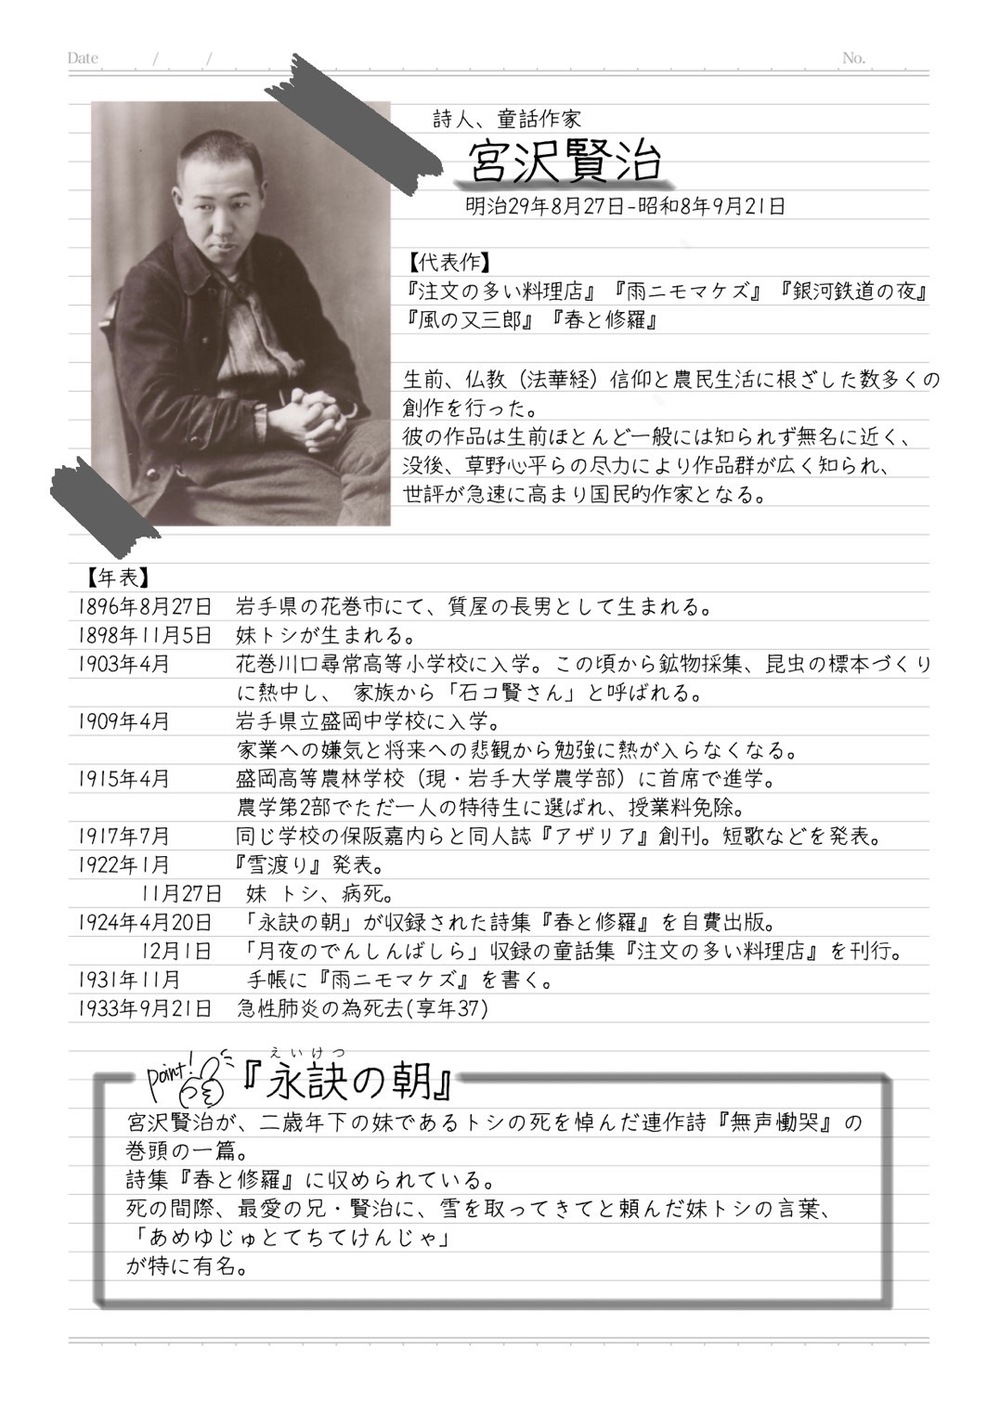 Date / /
No.
詩人、童話作家
宮沢賢治
明治29年8月27日-昭和8年9月21日
【代表作】
『注文の多い料理店』『雨ニモマケズ』『銀河鉄道の夜』
『風の又三郎』『春と修羅』
生前、仏教（法華経）信仰と農民生活に根ざした数多くの
創作を行った。
彼の作品は生前ほとんど一般には知られず無名に近く、
没後、草野心平らの尽力により作品群が広く知られ、
世評が急速に高まり国民的作家となる。
【年表】
1896年8月27日 岩手県の花巻市にて、質屋の長男として生まれる。
1898年11月5日 妹トシが生まれる。
1903年4月 花巻川口尋常高等小学校に入学。この頃から鉱物採集、昆虫の標本づくり
に熱中し、 家族から「石コ賢さん」と呼ばれる。
1909年4月 岩手県立盛岡中学校に入学。
家業への嫌気と将来への悲観から勉強に熱が入らなくなる。
1915年4月 盛岡高等農林学校（現・岩手大学農学部）に首席で進学。
農学第2部でただ一人の特待生に選ばれ、授業料免除。
1917年7月 同じ学校の保阪嘉内らと同人誌『アザリア』創刊。短歌などを発表。
1922年1月 『雪渡り』発表。
11月27日 妹 トシ、病死。
1924年4月20日 「永訣の朝」が収録された詩集『春と修羅』を自費出版。
12月1日 「月夜のでんしんばしら」収録の童話集『注文の多い料理店』を刊行。
1931年11月 手帳に『雨ニモマケズ』を書く。
1933年9月21日 急性肺炎の為死去(享年37)
えいけつ
point! 『永訣の朝』
宮沢賢治が、二歳年下の妹であるトシの死を悼んだ連作詩『無声慟哭』の
巻頭の一篇。
詩集『春と修羅』に収められている。
死の間際、最愛の兄・賢治に、雪を取ってきてと頼んだ妹トシの言葉、
「あめゆじゅとてちてけんじゃ」
が特に有名。